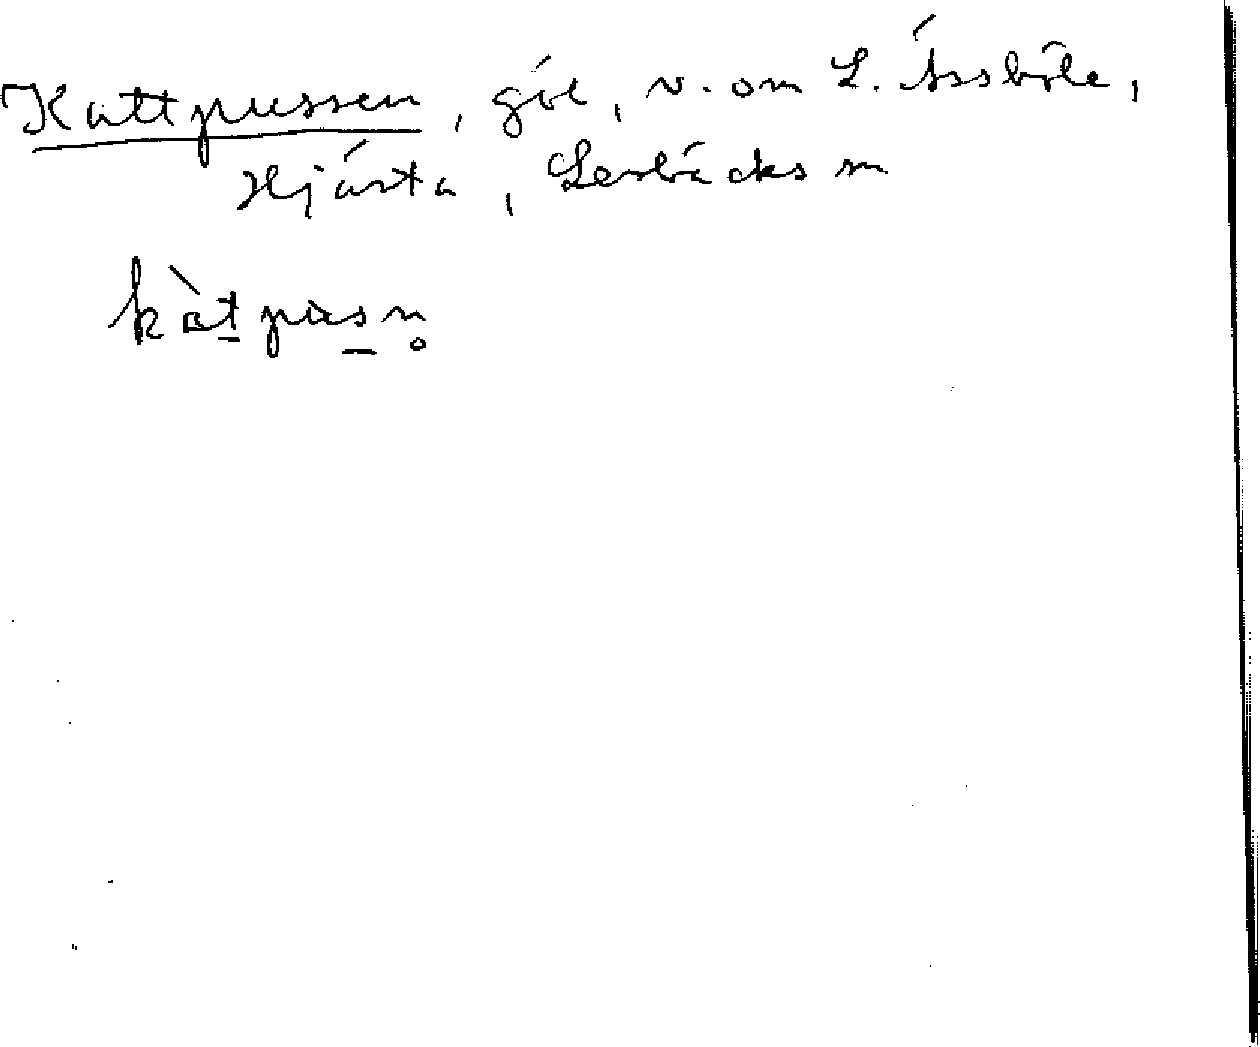 Kattpussen, göl, v. om L. Åssböle,
Hjärta, Lerbäcks sn
kàtpusn